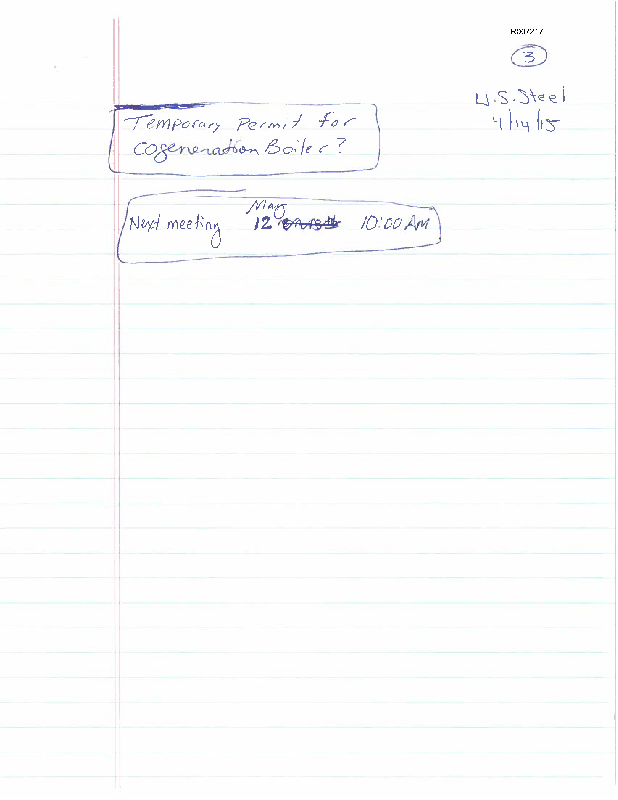 R007217
3
U.S. Steel
4/14/15
Temporary Permit for
Cogeneration Boiler?
May
Next meeting 12 10:00 AM